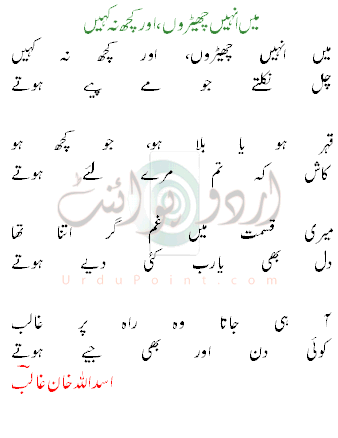 میں انہیں چھیڑوں، اور کچھ نہ کہیں
میں انہیں چھیڑوں، اور کچھ نہ کہیں
چل نکلتے جو مے پیے ہوتے
قہر ہو یا بلا ہو، جو کچھ ہو
کاش کہ تم مرے لئے ہوتے
میری قسمت میں غم گر اتنا تھا
دل بھی یارب کئی دیے ہوتے
آ ہی جاتا وہ راہ پر غالب
کوئی دن اور بھی جیے ہوتے
اسد اللہ خان غالب
اردو پوائنٹ
UrduPoint.com